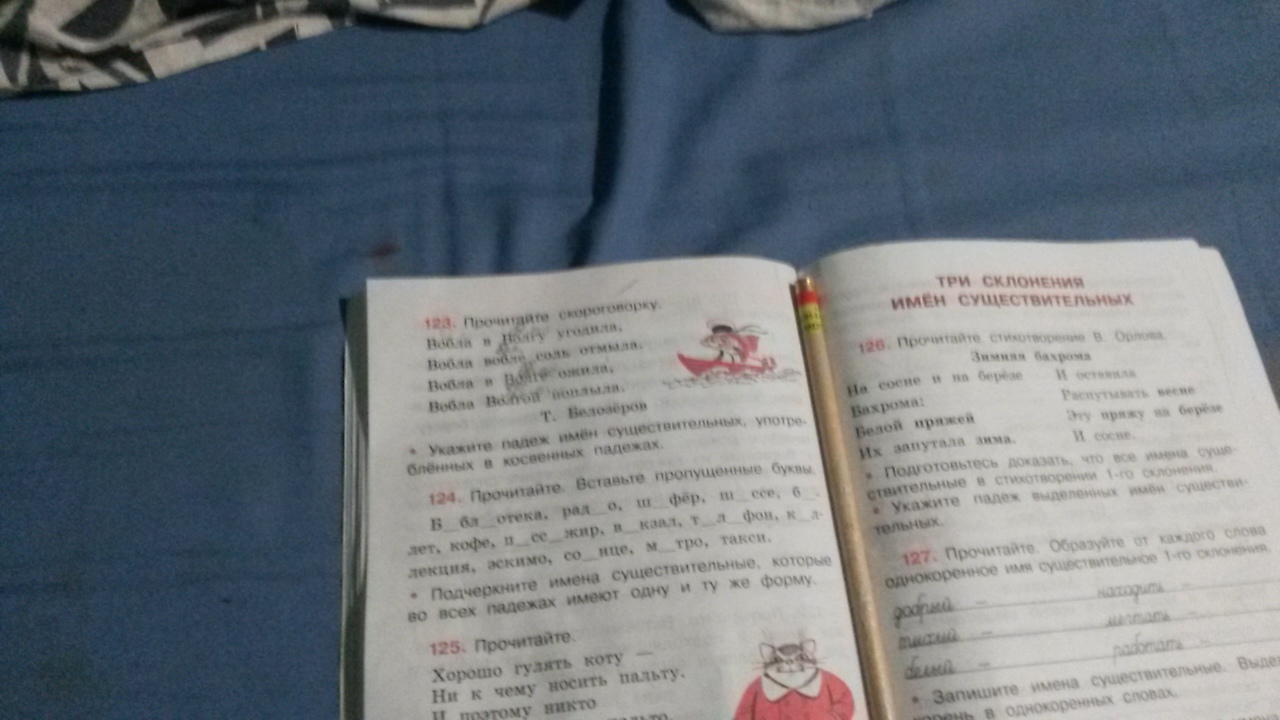 123. Прочитайте скороговорку.
Вобла в Волгу угодила,
Вобла вобле соль отмыла.
Вобла в Волге ожила,
Вобла Волгой поплыла.
Т. Белозёров
• Укажите падеж имён существительных, употре-
блённых в косвенных падежах.
124. Прочитайте. Вставьте пропущенные буквы.
Б_бл_отека, рад_о, ш_фёр, ш_ссе, б_-
лет, кофе, п_сс_жир, в_кзал, т_л_фон, к_л-
лекция, эскимо, со_нце, м_тро, такси.
• Подчеркните имена существительные, которые
во всех падежах имеют одну и ту же форму.
125. Прочитайте.
Хорошо гулять коту —
Ни к чему носить пальту.
И поэтому никто
пальто.
ТРИ СКЛОНЕНИЯ
ИМЁН СУЩЕСТВИТЕЛЬНЫХ
126. Прочитайте стихотворение В. Орлова.
Зимняя бахрома
На сосне и на берёзе
Бахрома:
Белой пряжей
Их запутала зима.
И оставила
Распутывать весне
Эту пряжу на берёзе
И сосне.
• Подготовьтесь доказать, что все имена суще-
ствительные в стихотворении 1-го склонения.
• Укажите падеж выделенных имён существи-
тельных.
127. Прочитайте. Образуйте от каждого слова
однокоренное имя существительное 1-го склонения.
добрый — находить —
тихий — мечтать —
белый — работать —
• Запишите имена существительные. Выде
корень в однокоренных словах.